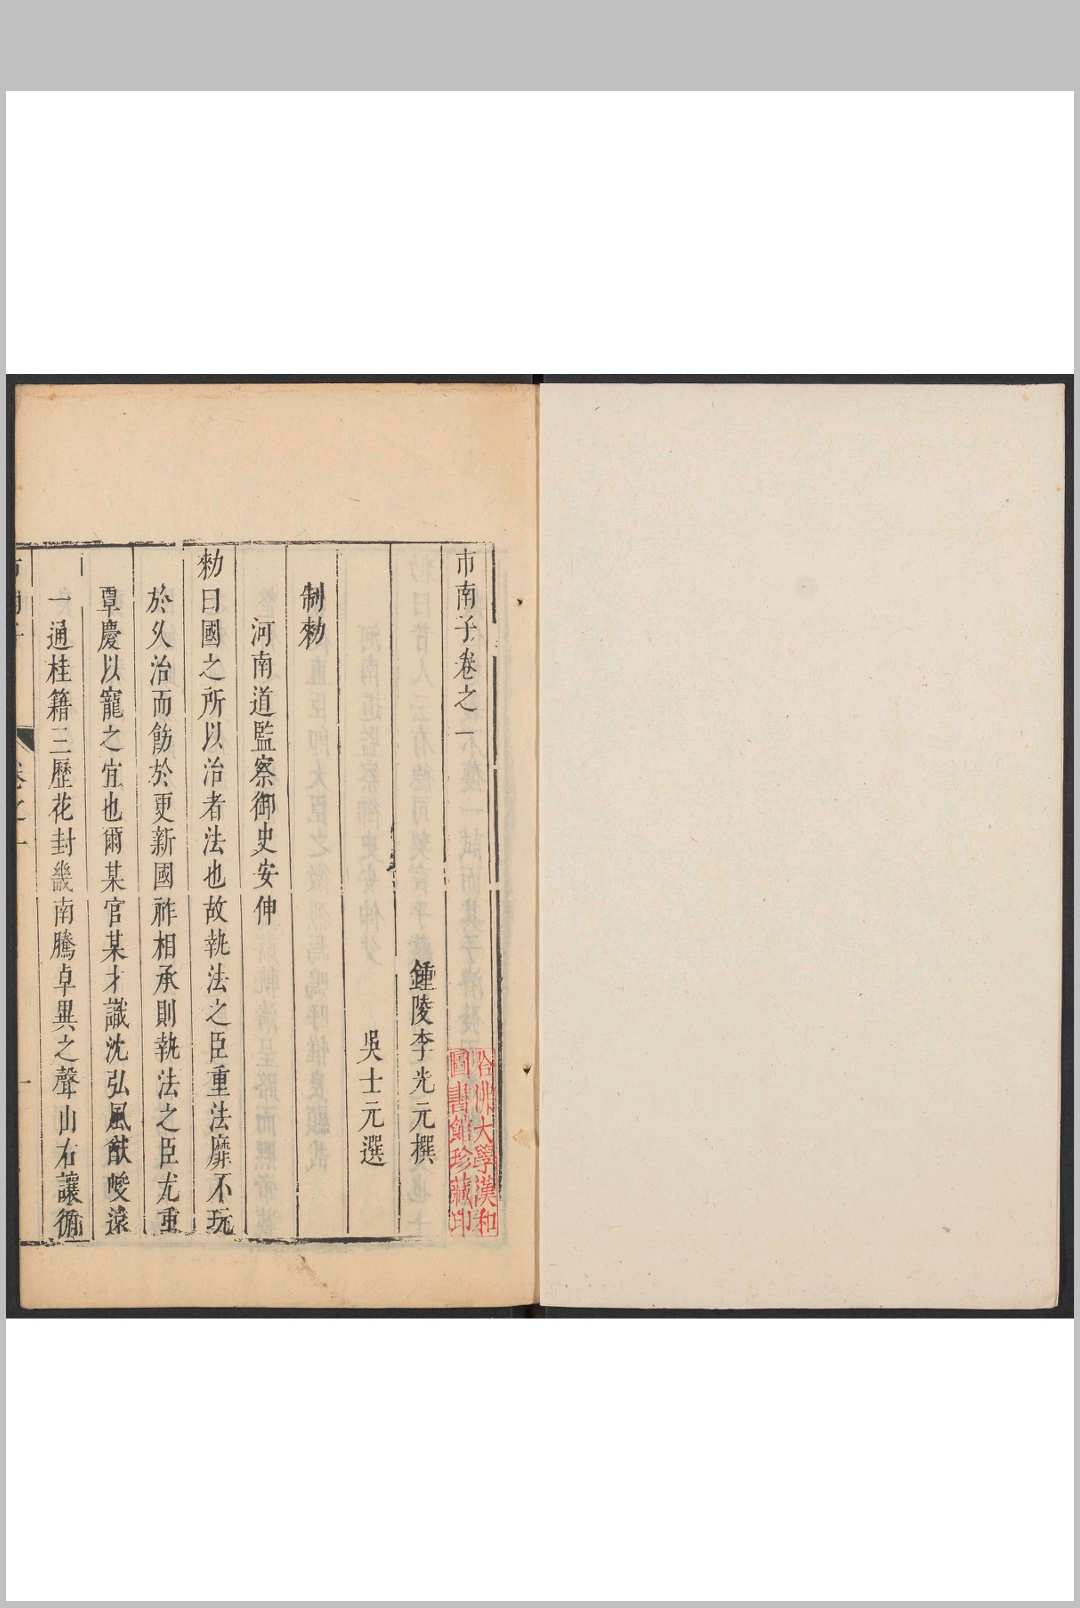 市南子卷之一
鍾陵李光元撰
吳士元選
制勑
河南道監察御史安伸
勑曰國之所以治者法也故執法之臣重法靡不玩
於久治而飭於更新國祚相承則執法之臣尤重
覃慶以寵之宜也爾某官某才識沈弘風猷峻遠
一通桂籍三歷花封畿南騰卓異之聲山右讓循
市南子
卷之一
一
哈佛大學漢和
圖書館珍藏印